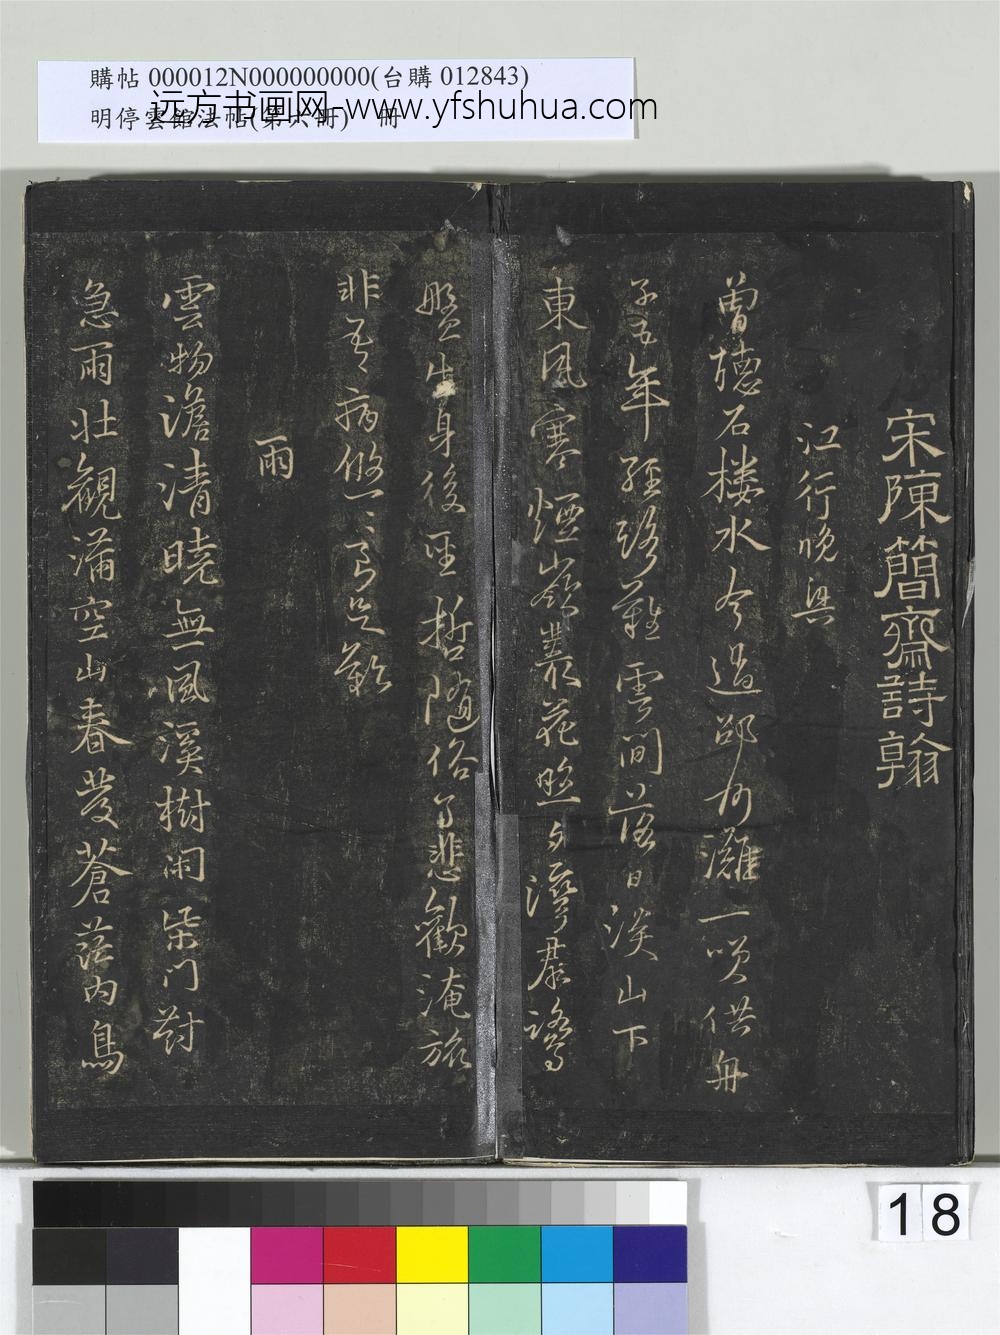 購帖 000012N000000000(台購 012843)
明停雲館法帖(第六冊) 冊
远方书画网-www.yfshuhua.com
宋陳簡齋詩翰
江行晚興
曽聴石楼水今過邵州灘一笑供舟
子五年經路難雲間落日淡山下
東風寒煙嶺叢花照夕灣羣鷺
盤生身後聖哲隨俗了悲歡淹旅
非吾病悠〻良足歎
雨
雲物澹清曉無風溪樹閑柴門對
急雨壯觀滿空山春發蒼茫内鳥
18